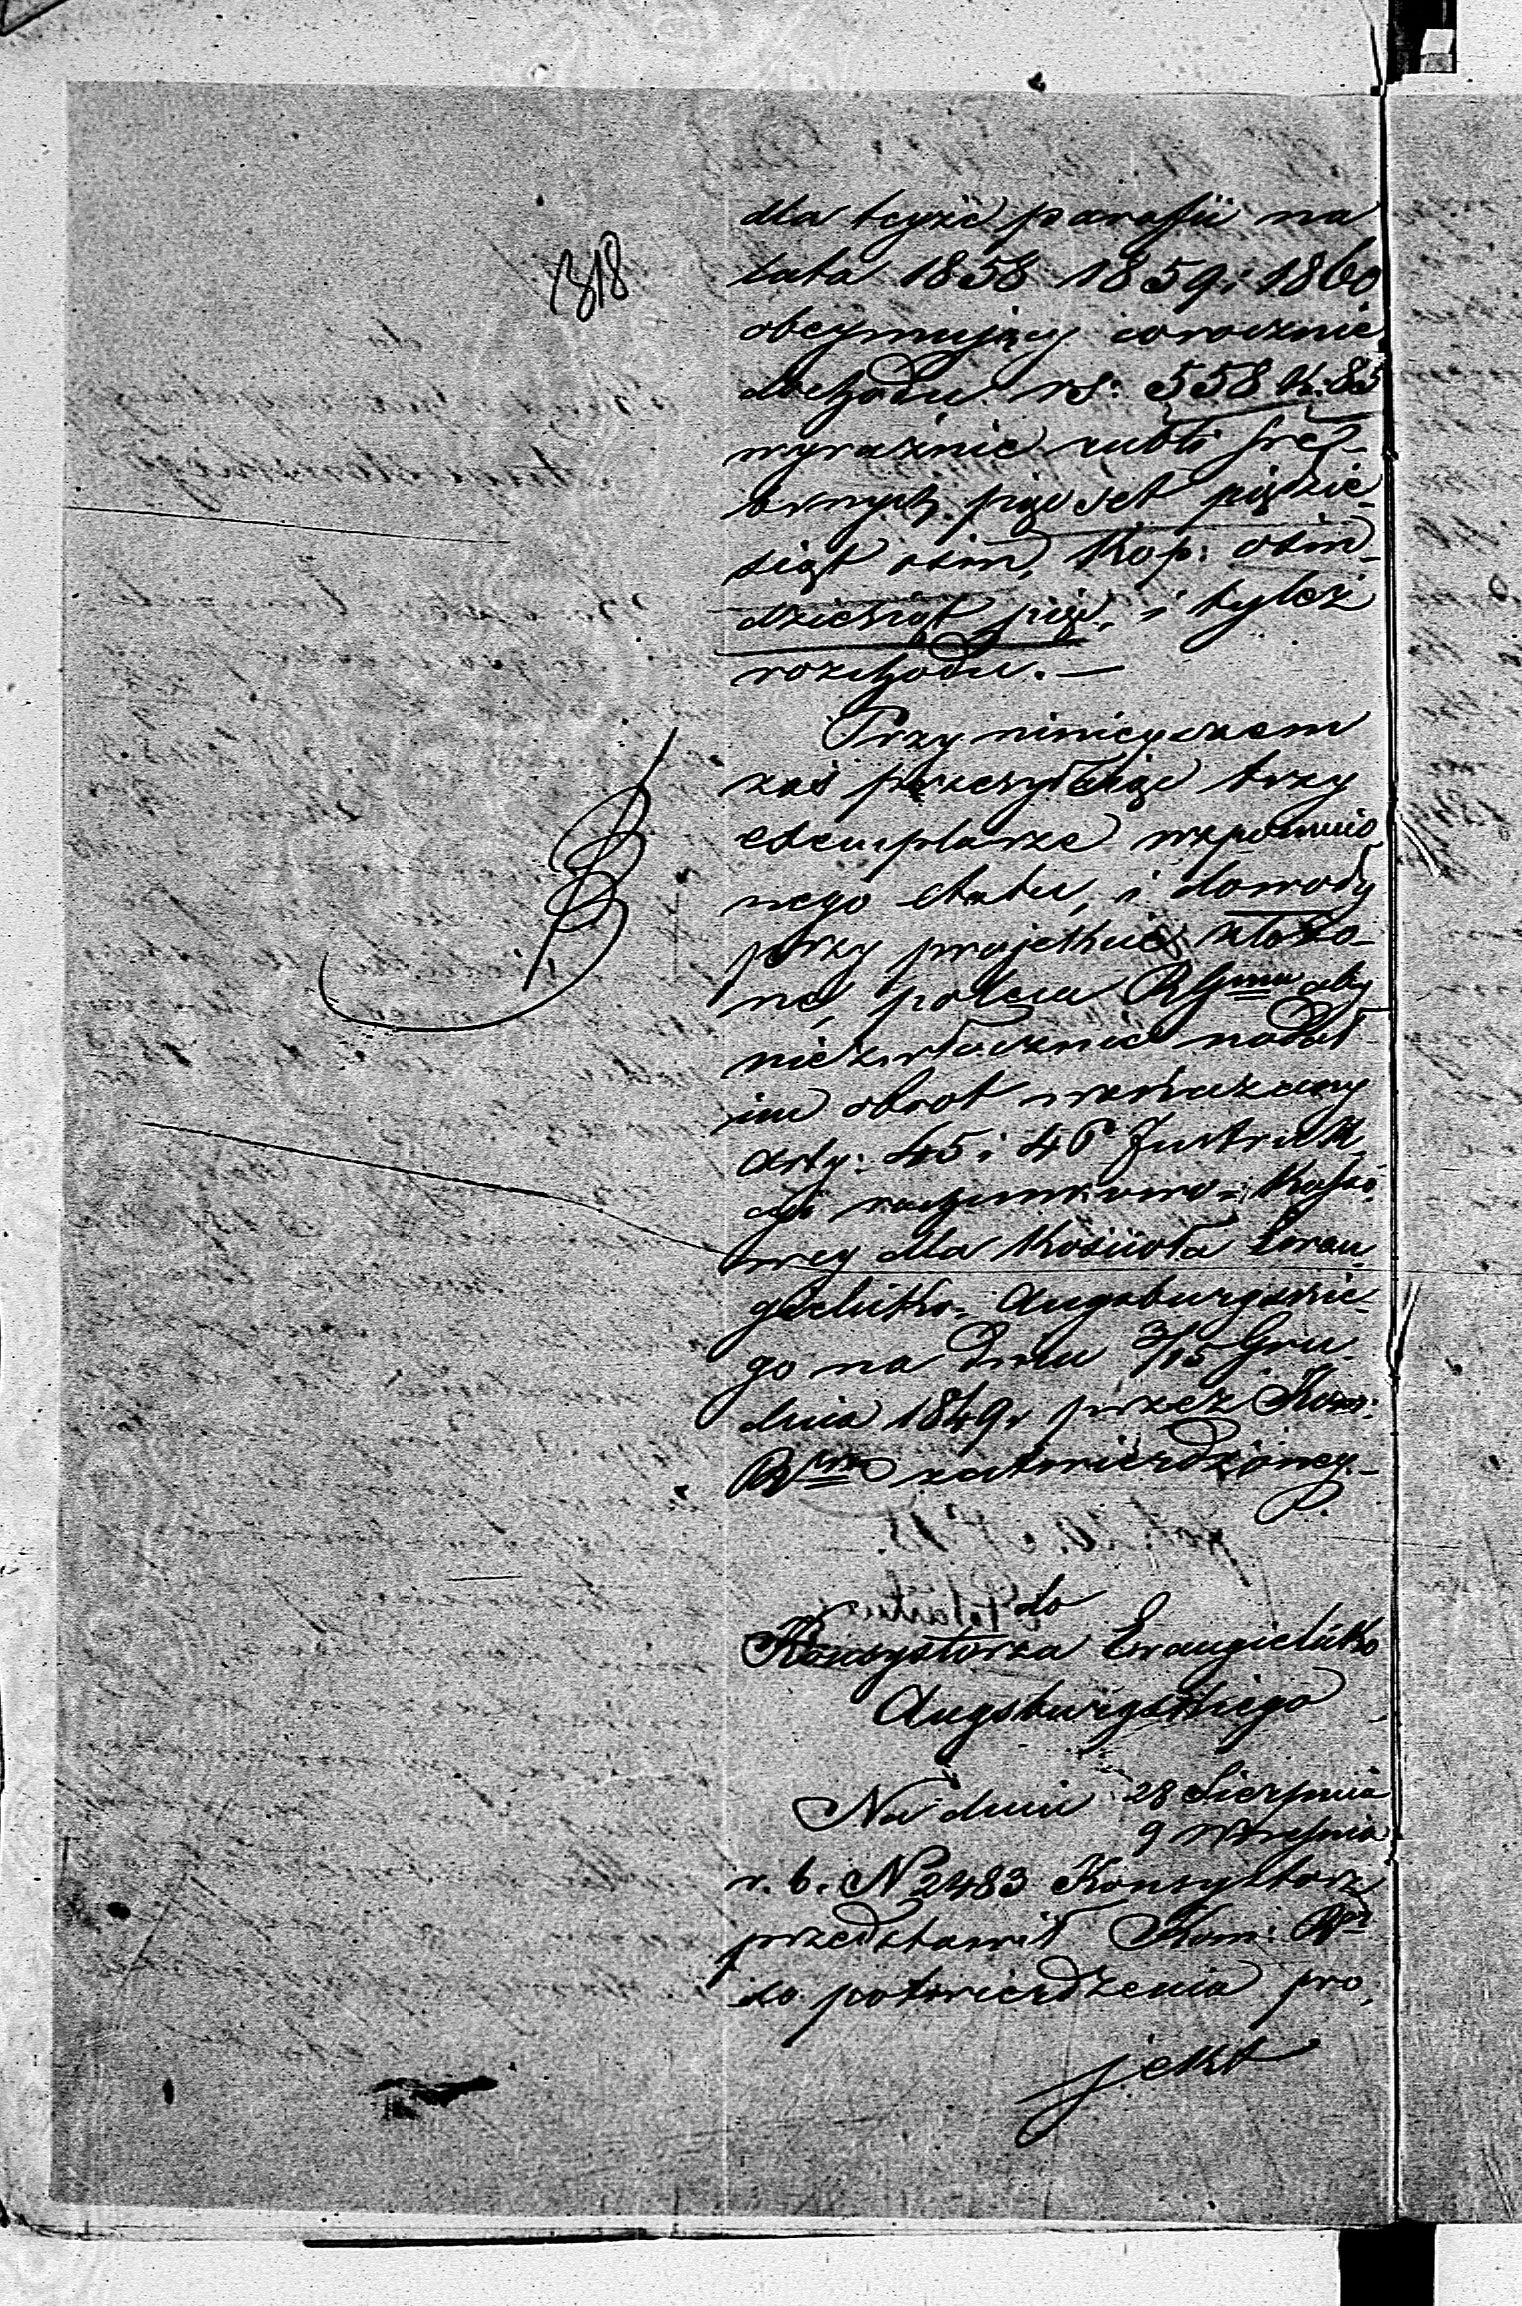 1318
dla teyże parafii na
lata 1858 1859 i 1860
obeymujący corocznie
dochodu rs: 558 k: 85
wyraźnie rubli sre-
brnych pięćset pięćdzie-
siąt ośm, kop: ośm-
dziesiąt pięć, i tyleż
rozchodu. —
Przy niniejszem
zaś przesyłając trzy
exemplarze wspomnio
nego etatu, i dowody
przy projekcie złożo-
ne, poleca Rząmu aby
niezwłocznie nadał
im obrot wskazany
arty: 45 i 46 Instruk
cyi rachunkowo-kasso
wey dla Kościoła Ewan
gelicko-Augsburgskie-
go na dniu 3/15 Gru
dnia 1849 r przez Kom:
Rwą zatwierdzoney.
do
Konsystorza Ewangielicko
Augsburgskiego
Na dniu 28 Sierpnia
9 Września
r. b. N 2483 Konsystorz
przedstawił Kom: Rwey
do potwierdzenia pro-
jekt